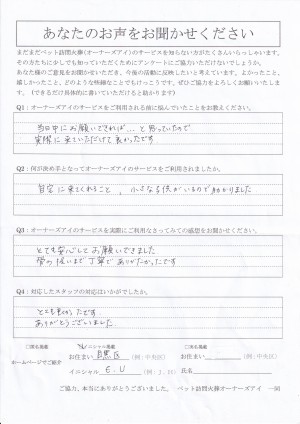 あなたのお声をお聞かせください
まだまだペット訪問火葬(オーナーズアイ)のサービスを知らない方がたくさんいらっしゃいます。
その方たちに少しでも知っていただくためにアンケートにご協力いただけないでしょうか。
あなた様のご意見をお聞かせいただき、今後の活動に反映したいと考えています。よかったこと、
嬉しかったこと、どのような些細なことでもけっこうです。ぜひご協力をよろしくお願いいたします。(できるだけ具体的に書いていただけると助かります)
Q1:オーナーズアイのサービスをご利用される前に悩んでいたことをお教えください。
当日中にお願いできれば…と思っていたので
実際に来ていただけて良かったです
Q2:何が決め手となってオーナーズアイのサービスをご利用されましたか。
自宅に来てくれること、小さな子供がいるので助かりました
Q3:オーナーズアイのサービスを実際にご利用なさってみての感想をお聞かせください。
とても安心してお願いできました
骨の扱いまで丁寧でありがたかったです
Q4:対応したスタッフの対応はいかがでしたか。
とても良かったです
ありがとうございました
□イニシャル掲載
□実名掲載
お住まい 目黒区 (例:中央区)
お住まい (例:中央区)
ホームページでご紹介
イニシャル E.U (例:J.H)
氏名
ご協力、本当にありがとうございました。 ペット訪問火葬オーナーズアイ 一同